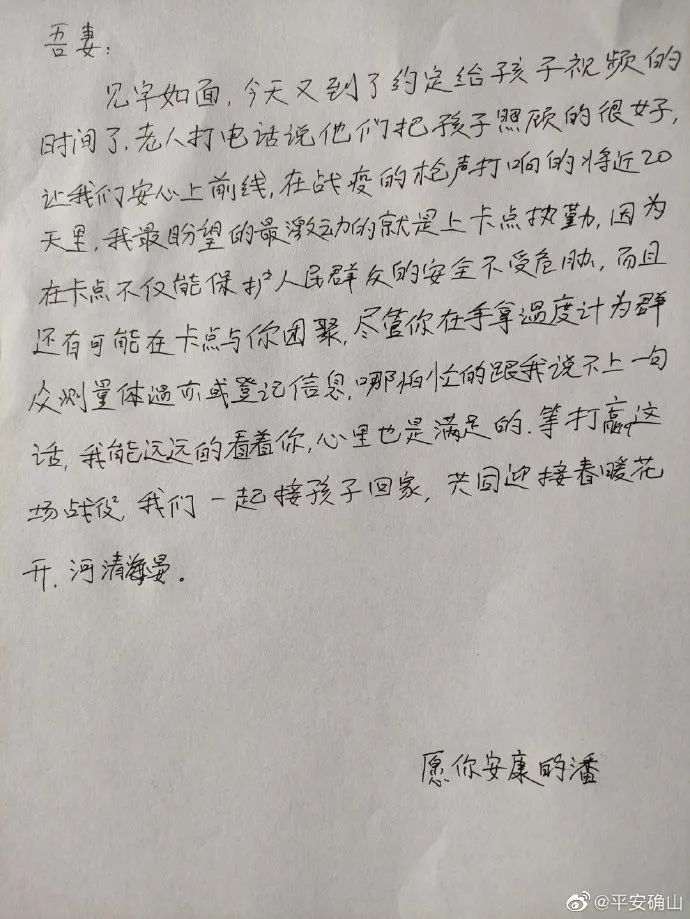 吾妻:
见字如面,今天又到了约定给孩子视频的
时间了,老人打电话说他们把孩子照顾的很好,
让我们安心上前线,在战疫的枪声打响的将近20
天里,我最盼望的最激动的就是上卡点执勤,因为
在卡点不仅能保护人民群众的安全不受危胁,而且
还有可能在卡点与你团聚,尽管你在手拿温度计为群
众测量体温亦或登记信息,哪怕忙的跟我说不上一句
话,我能远远的看着你,心里也是满足的.等打赢这
场战役,我们一起接孩子回家,共同迎接春暖花
开,河清海晏。
愿你安康的潘
@平安确山